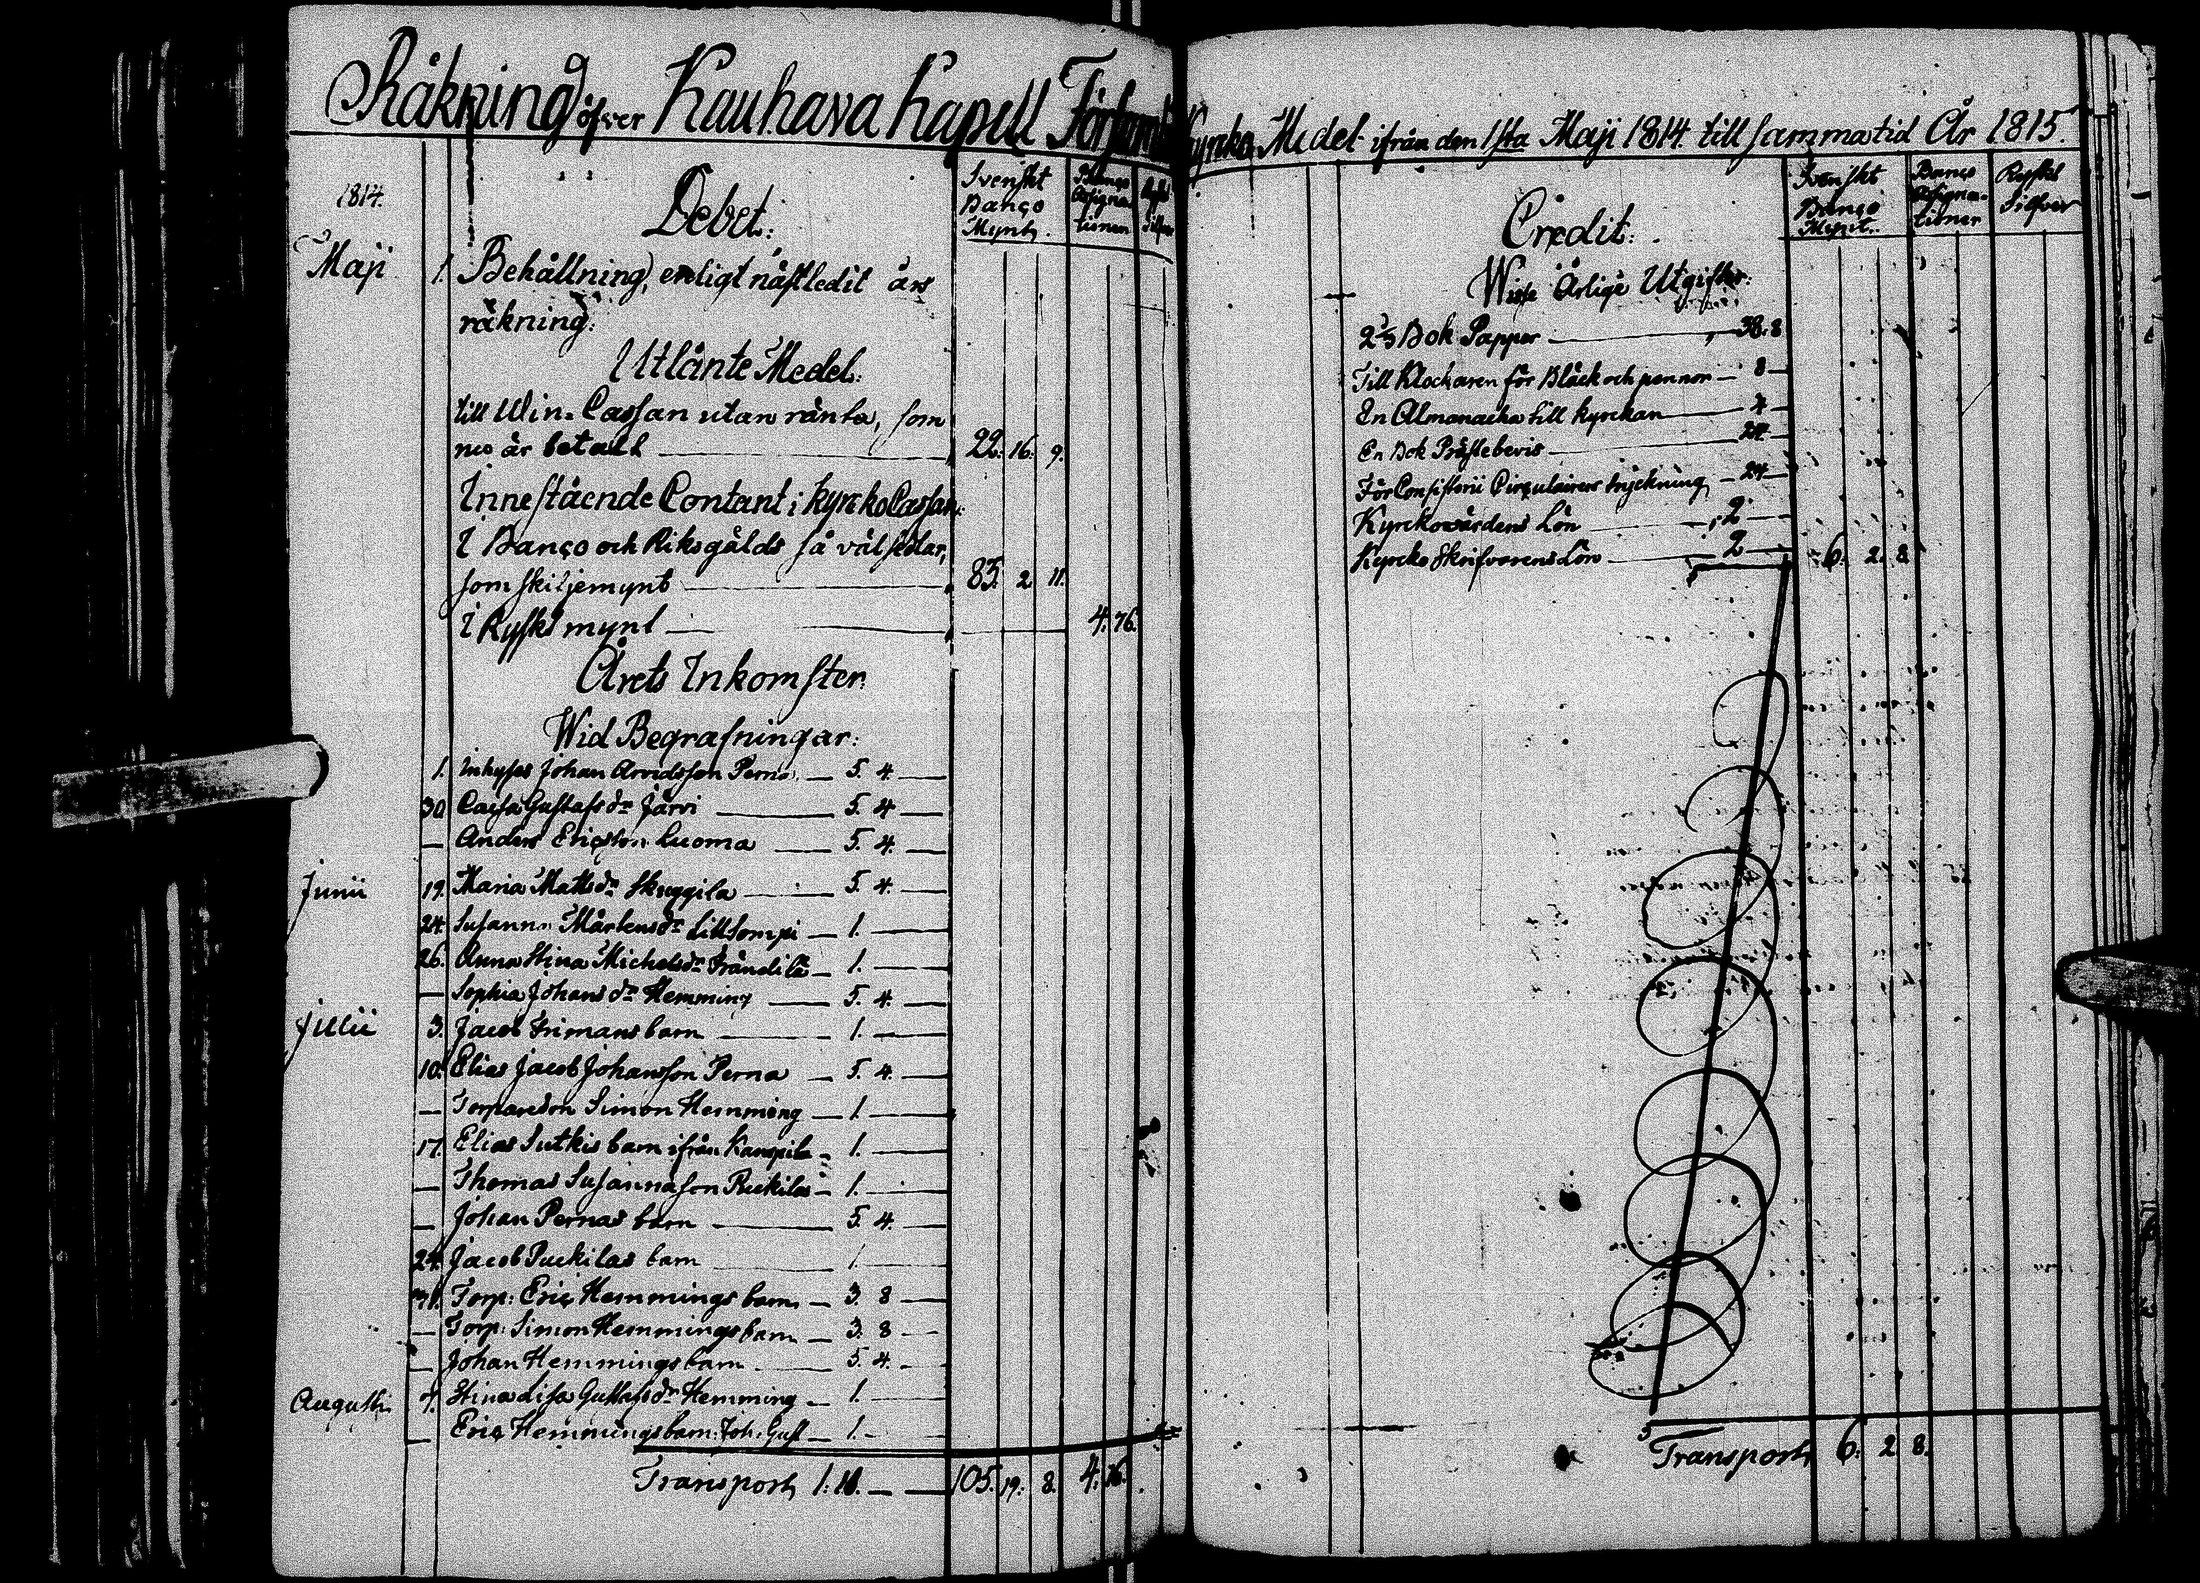 Räkning öfver Kauhava Kapell Församl Kyrcko Medel ifrån den 1sta Maji 1814 till samma tid År 1815.
1814.
Debet:
Svenskt Banço Mynt.
Banço Assignationer
Ryskt Silfver
Maji 1. Behållning, enligt nästledit års
räkning:
Utlånte Medel:
till Win-Cassan utan ränta, som
nu är betalt 22: 16. 9.
Innestående Contant i KyrckoCassan:
I Banço och Riksgälds så väl sedlar,
som skiljemynt 83. 2. 11.
I Ryskt mynt 4. 76.
Årets Inkomster
Wid Begrafningar:
1. Inhyses Johan Arvidsson Perna 5. 4.
30 Caisa Gustafsdr Järvi 5. 4
— Anders Ericsson Luoma 5. 4.
Junii 19. Maria Mattsdr Skuggila 5. 4.
24. Susanna Mårtensdr Lillsompi 1.
26. Anna Stina Michelsdr Frändilä 1.
— Sophia Johansdr Hemming 5. 4.
Julii 3. Jacob Frimans barn 1.
10. Elias Jacob Johansson Perna 5. 4.
— Torparedon Simon Hemming 1.
17. Elias Sutkis barn ifrån Kanpila 1.
— Thomas Susannason Ruckila 1.
— Johan Pernas barn 5. 4.
24. Jacob Puckilas barn 1.
31. Torp: Eriç Hemmings barn 3. 8
— Torp: Simon Hemmings barn 3. 8
— Johan Hemmings barn 5. 4.
Augusti 7. Stina Lisa Gustafsdr Hemming 1.
— Eriç Hemmings barn: Joh: Gust 1.
Transport 1: 10. 105. 19. 8. 4. 76.
Credit:
Svenskt Banço Mynt.
Banço Assignationer
Ryskt Silfver
Wisse Årlige Utgifter:
2 2/3 Bok Papper 38. 8
Till Klockaren för Bläck och pennor 8
En Almanacka till kyrckan 4
En Bok Prästebevis 24
För Consistorii Cirqulairers tryckning 24
Kyrckowärdens Lön 2
Kyrcko Skrifvarens Lön 2 6. 2. 8
Transport 6. 2 8.